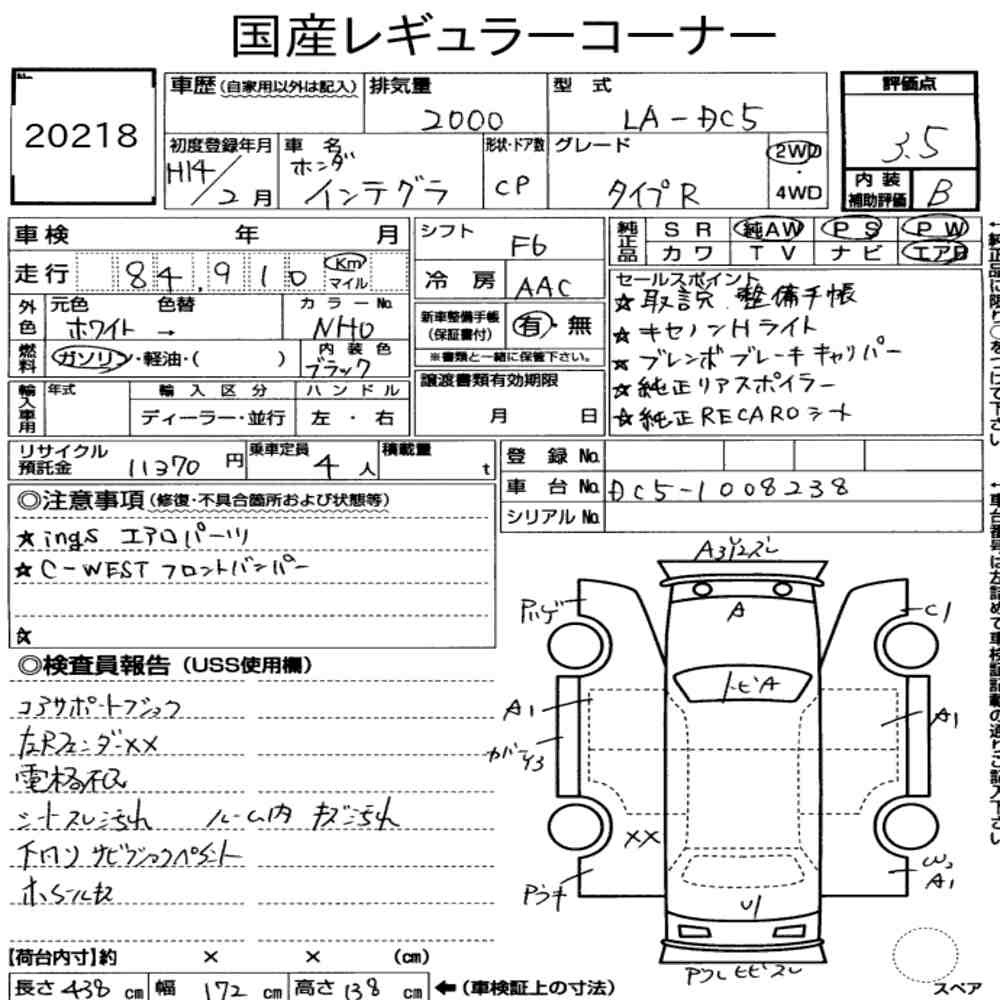 国産レギュラーコーナー
20218
車歴(自家用以外は記入) 排気量 2000 型式 LA-DC5
評価点 3.5
初度登録年月 H14/2月 車名 ホンダ インテグラ 形状・ドア数 CP グレード タイプR 2WD・4WD
内装補助評価 B
車検 年 月
走行 84,910 Km マイル
シフト F6
冷房 AAC
純正品 SR 純AW PS PW
カワ TV ナビ エアB
外色 元色 ホワイト → 色替 カラーNo. NH0
燃料 ガソリン・軽油・( ) 内装色 ブラック
新車整備手帳(保証書付) 有・無
※書類と一緒に保管下さい。
セールスポイント
☆取説 整備手帳
☆キセノンHライト
☆ブレンボブレーキキャリパー
☆純正リアスポイラー
☆純正RECAROシート
輸入車用 年式 輸入区分 ハンドル
ディーラー・並行 左・右
譲渡書類有効期限
月 日
リサイクル預託金 11370円 乗車定員 4人 積載量 t
登録No.
車台No. DC5-1008238
シリアルNo.
◎注意事項(修復・不具合箇所および状態等)
☆ings エアロパーツ
☆C-WEST フロントバンパー
☆
◎検査員報告(USS使用欄)
コアサポートフショク
左Rフェンダーxx
電格不良
シートスレ汚れ ルーム内 キズ汚れ
下回り サビフショクペイント
A
トビA
C1
A1
A1
xx
A1
U1
【荷台内寸】約 × × (cm)
長さ 438 cm 幅 172 cm 高さ 138 cm ←(車検証上の寸法)
スペア